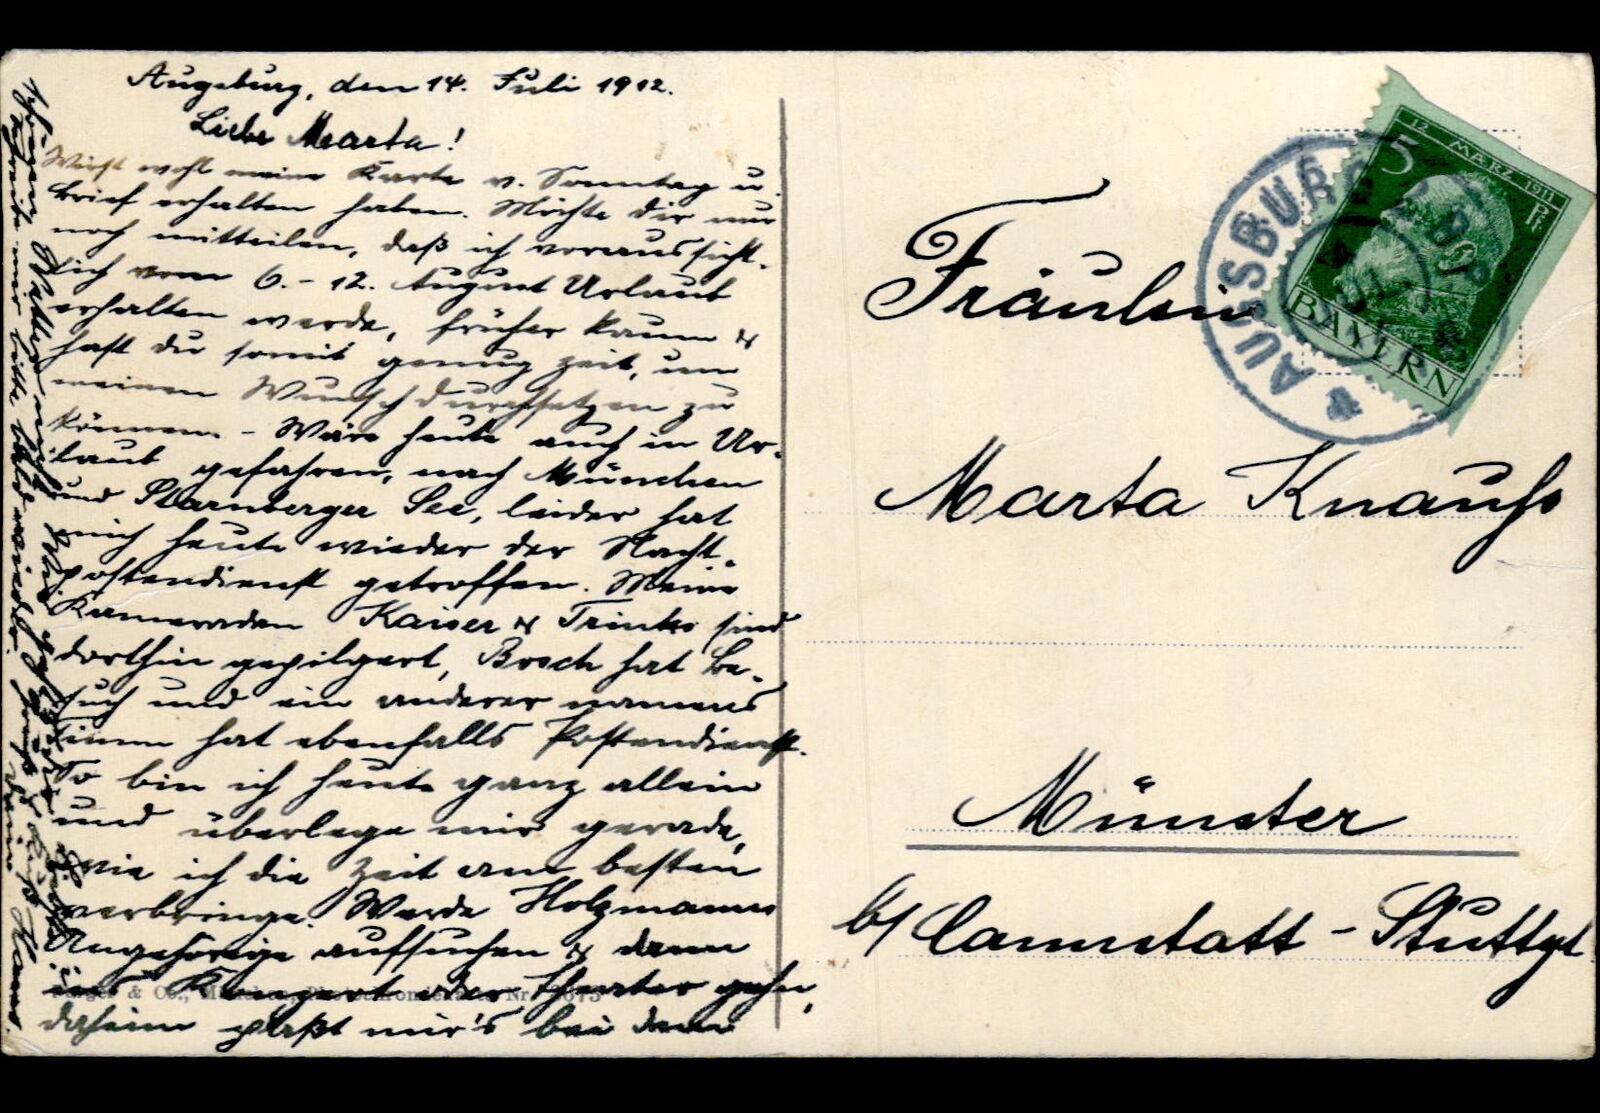 Augsburg, den 14. Juli 1912.
Liebe Marta!
Wirst wohl meine Karte v. Sonntag u.
Brief erhalten haben. Möchte dir nur
noch mitteilen, daß ich voraussicht-
lich vom 6. - 12. August Urlaub
erhalten werde, früher kaum &
hast du somit genug Zeit, um
meinen Wunsch durchsetzen zu
können. - Wäre heute auch in Ur-
laub gefahren, nach München
und Starnberger See, leider hat
mich heute wieder der Nacht-
postendienst getroffen. Meine
Kameraden Kaiser & Trinks sind
dorthin gepilgert, Bosch hat Be-
such und ein anderer namens
hat ebenfalls Postendienst.
So bin ich heute ganz allein
und überlege mir gerade,
wie ich die Zeit am besten
verbringe. Werde Holzmanns
Angehörige aufsuchen & dann
ins Konzert oder Theater gehn,
daheim paßt mir's bei dem
schönen Wetter nicht
Schreibe mir bitte bald wieder.
Fräulein
Marta Knauß
Münster
b/ Cannstatt - Stuttgt
12. MÄRZ 1911
5 Pf.
BAYERN
AUGSBURG 2
JUL
& Co., München, Nr. 8673